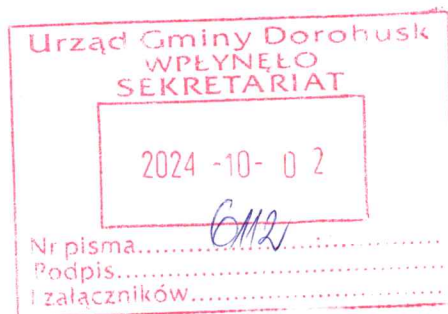 Urząd Gminy Dorohusk
WPŁYNĘŁO
SEKRETARIAT
2024 -10- 0 2
Nr pisma 6112
Podpis
I załączników